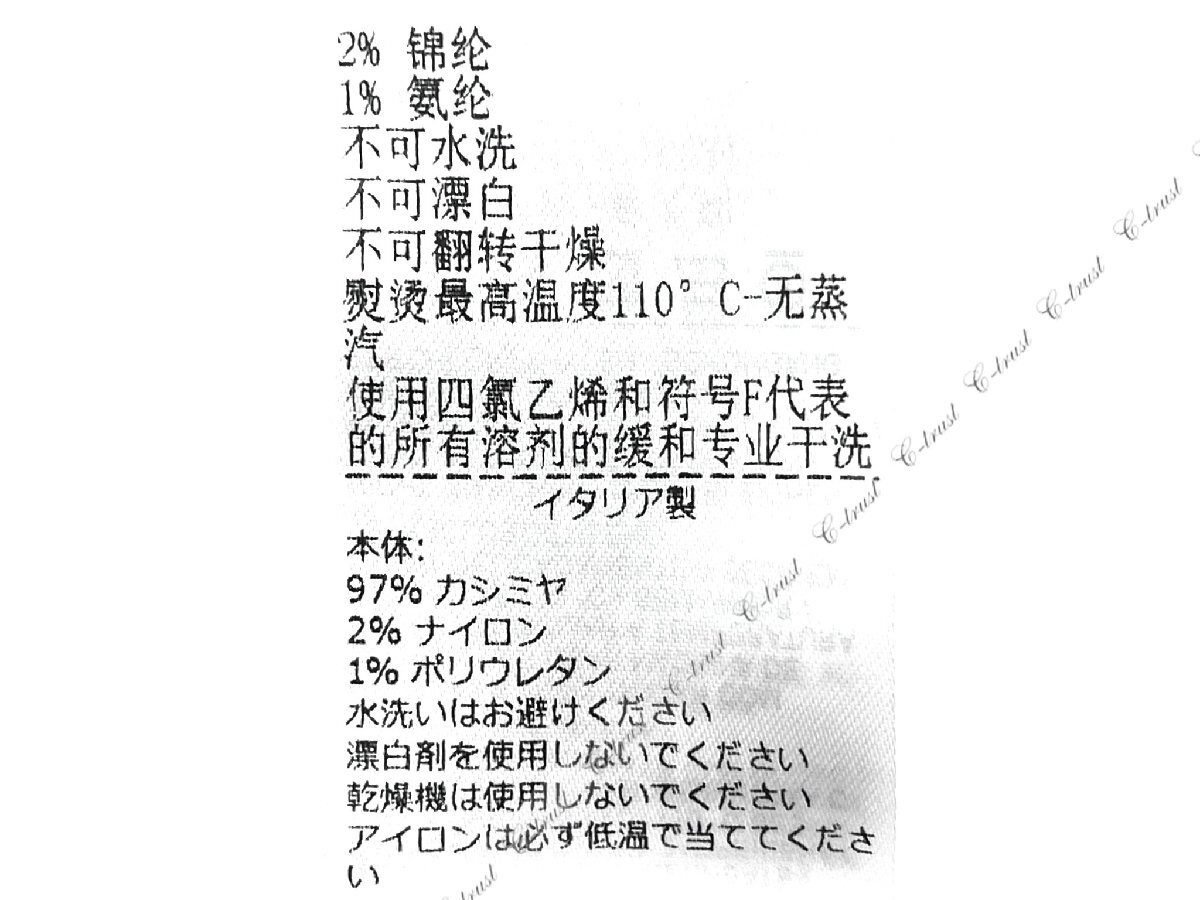 2% 锦纶
1% 氨纶
不可水洗
不可漂白
不可翻转干燥
熨烫最高温度110°C-无蒸
汽
使用四氯乙烯和符号F代表
的所有溶剂的缓和专业干洗
イタリア製
本体:
97% カシミヤ
2% ナイロン
1% ポリウレタン
水洗いはお避けください
漂白剤を使用しないでください
乾燥機は使用しないでください
アイロンは必ず低温で当ててくださ
い
C-trust
C-trust
C-trust
C-trust
C-trust
C-trust
C-trust
C-trust